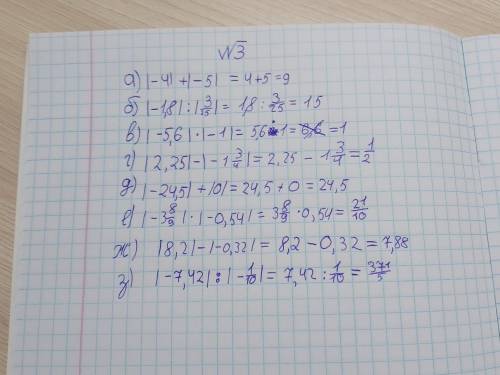 №3
а) |-4| + |-5| = 4+5=9
б) |-1,8| : |3/25| = 1,8 : 3/25 = 15
в) |-5,6| · |-1| = 5,6 · 1 = = 1
г) |2,25| - |-1 3/4| = 2,25 - 1 3/4 = 1/2
д) |-24,5| + |0| = 24,5 + 0 = 24,5
е) |-3 8/9| · |-0,54| = 3 8/9 · 0,54 = 21/10
ж) |8,2| - |-0,32| = 8,2 - 0,32 = 7,88
з) |-7,42| : |-1/10| = 7,42 : 1/10 = 371/5